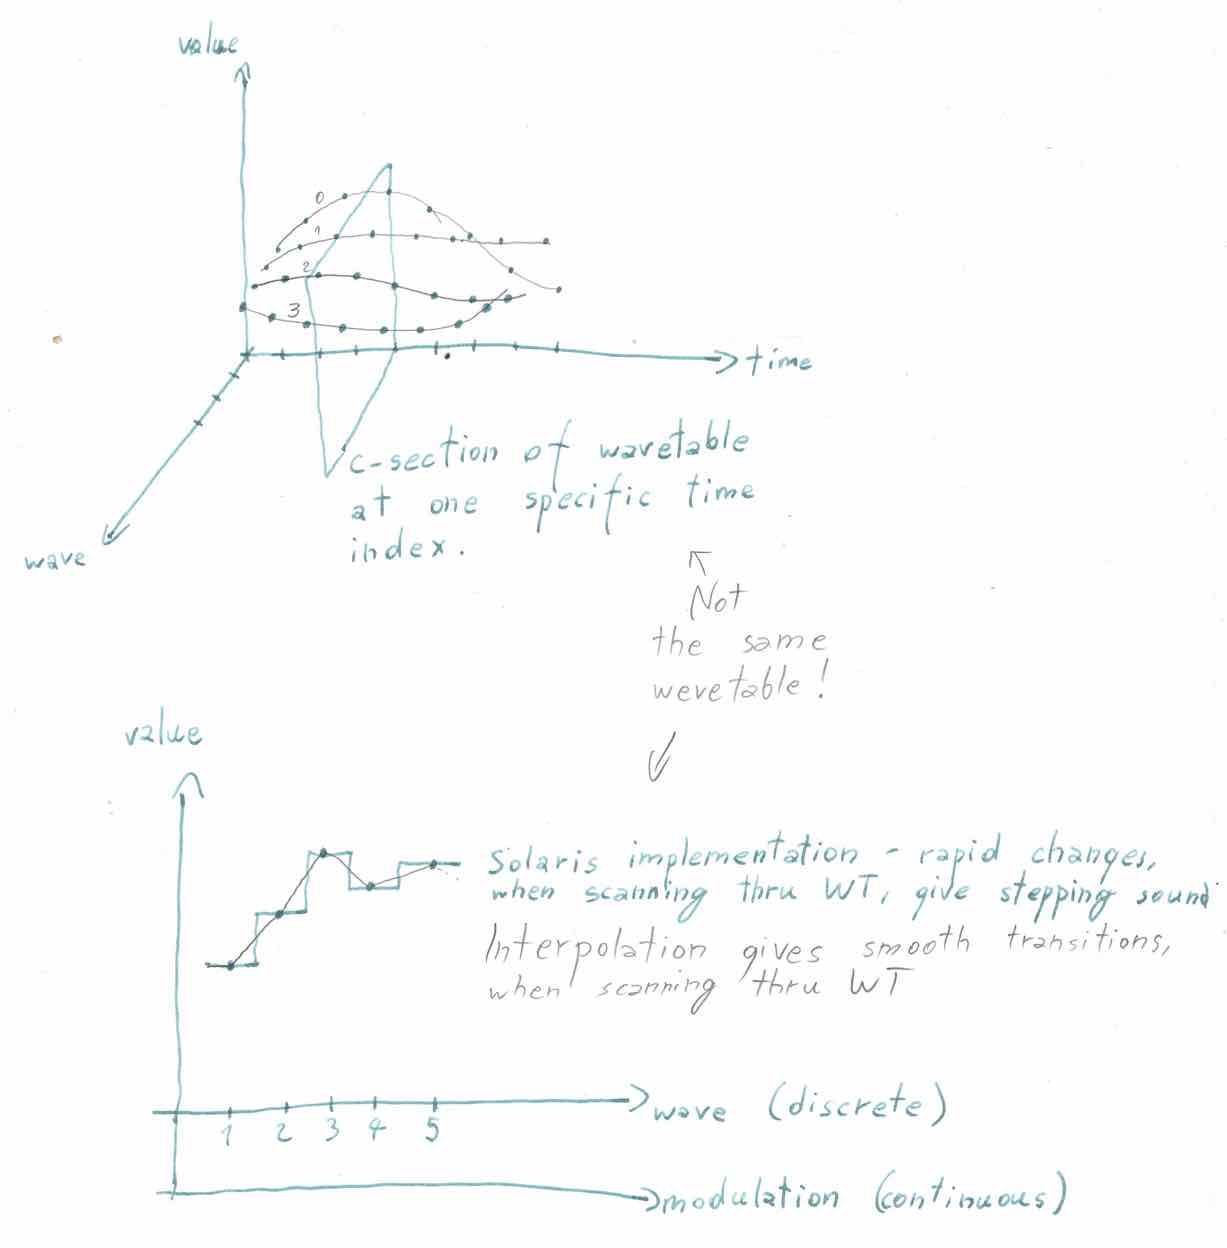 value
0
1
2
3
time
c-section of wavetable
at one specific time
index.
wave
Not
the same
wevetable!
value
Solaris implementation - rapid changes,
when scanning thru WT, give stepping sound
Interpolation gives smooth transitions,
when scanning thru WT
wave (discrete)
1 2 3 4 5
modulation (continuous)